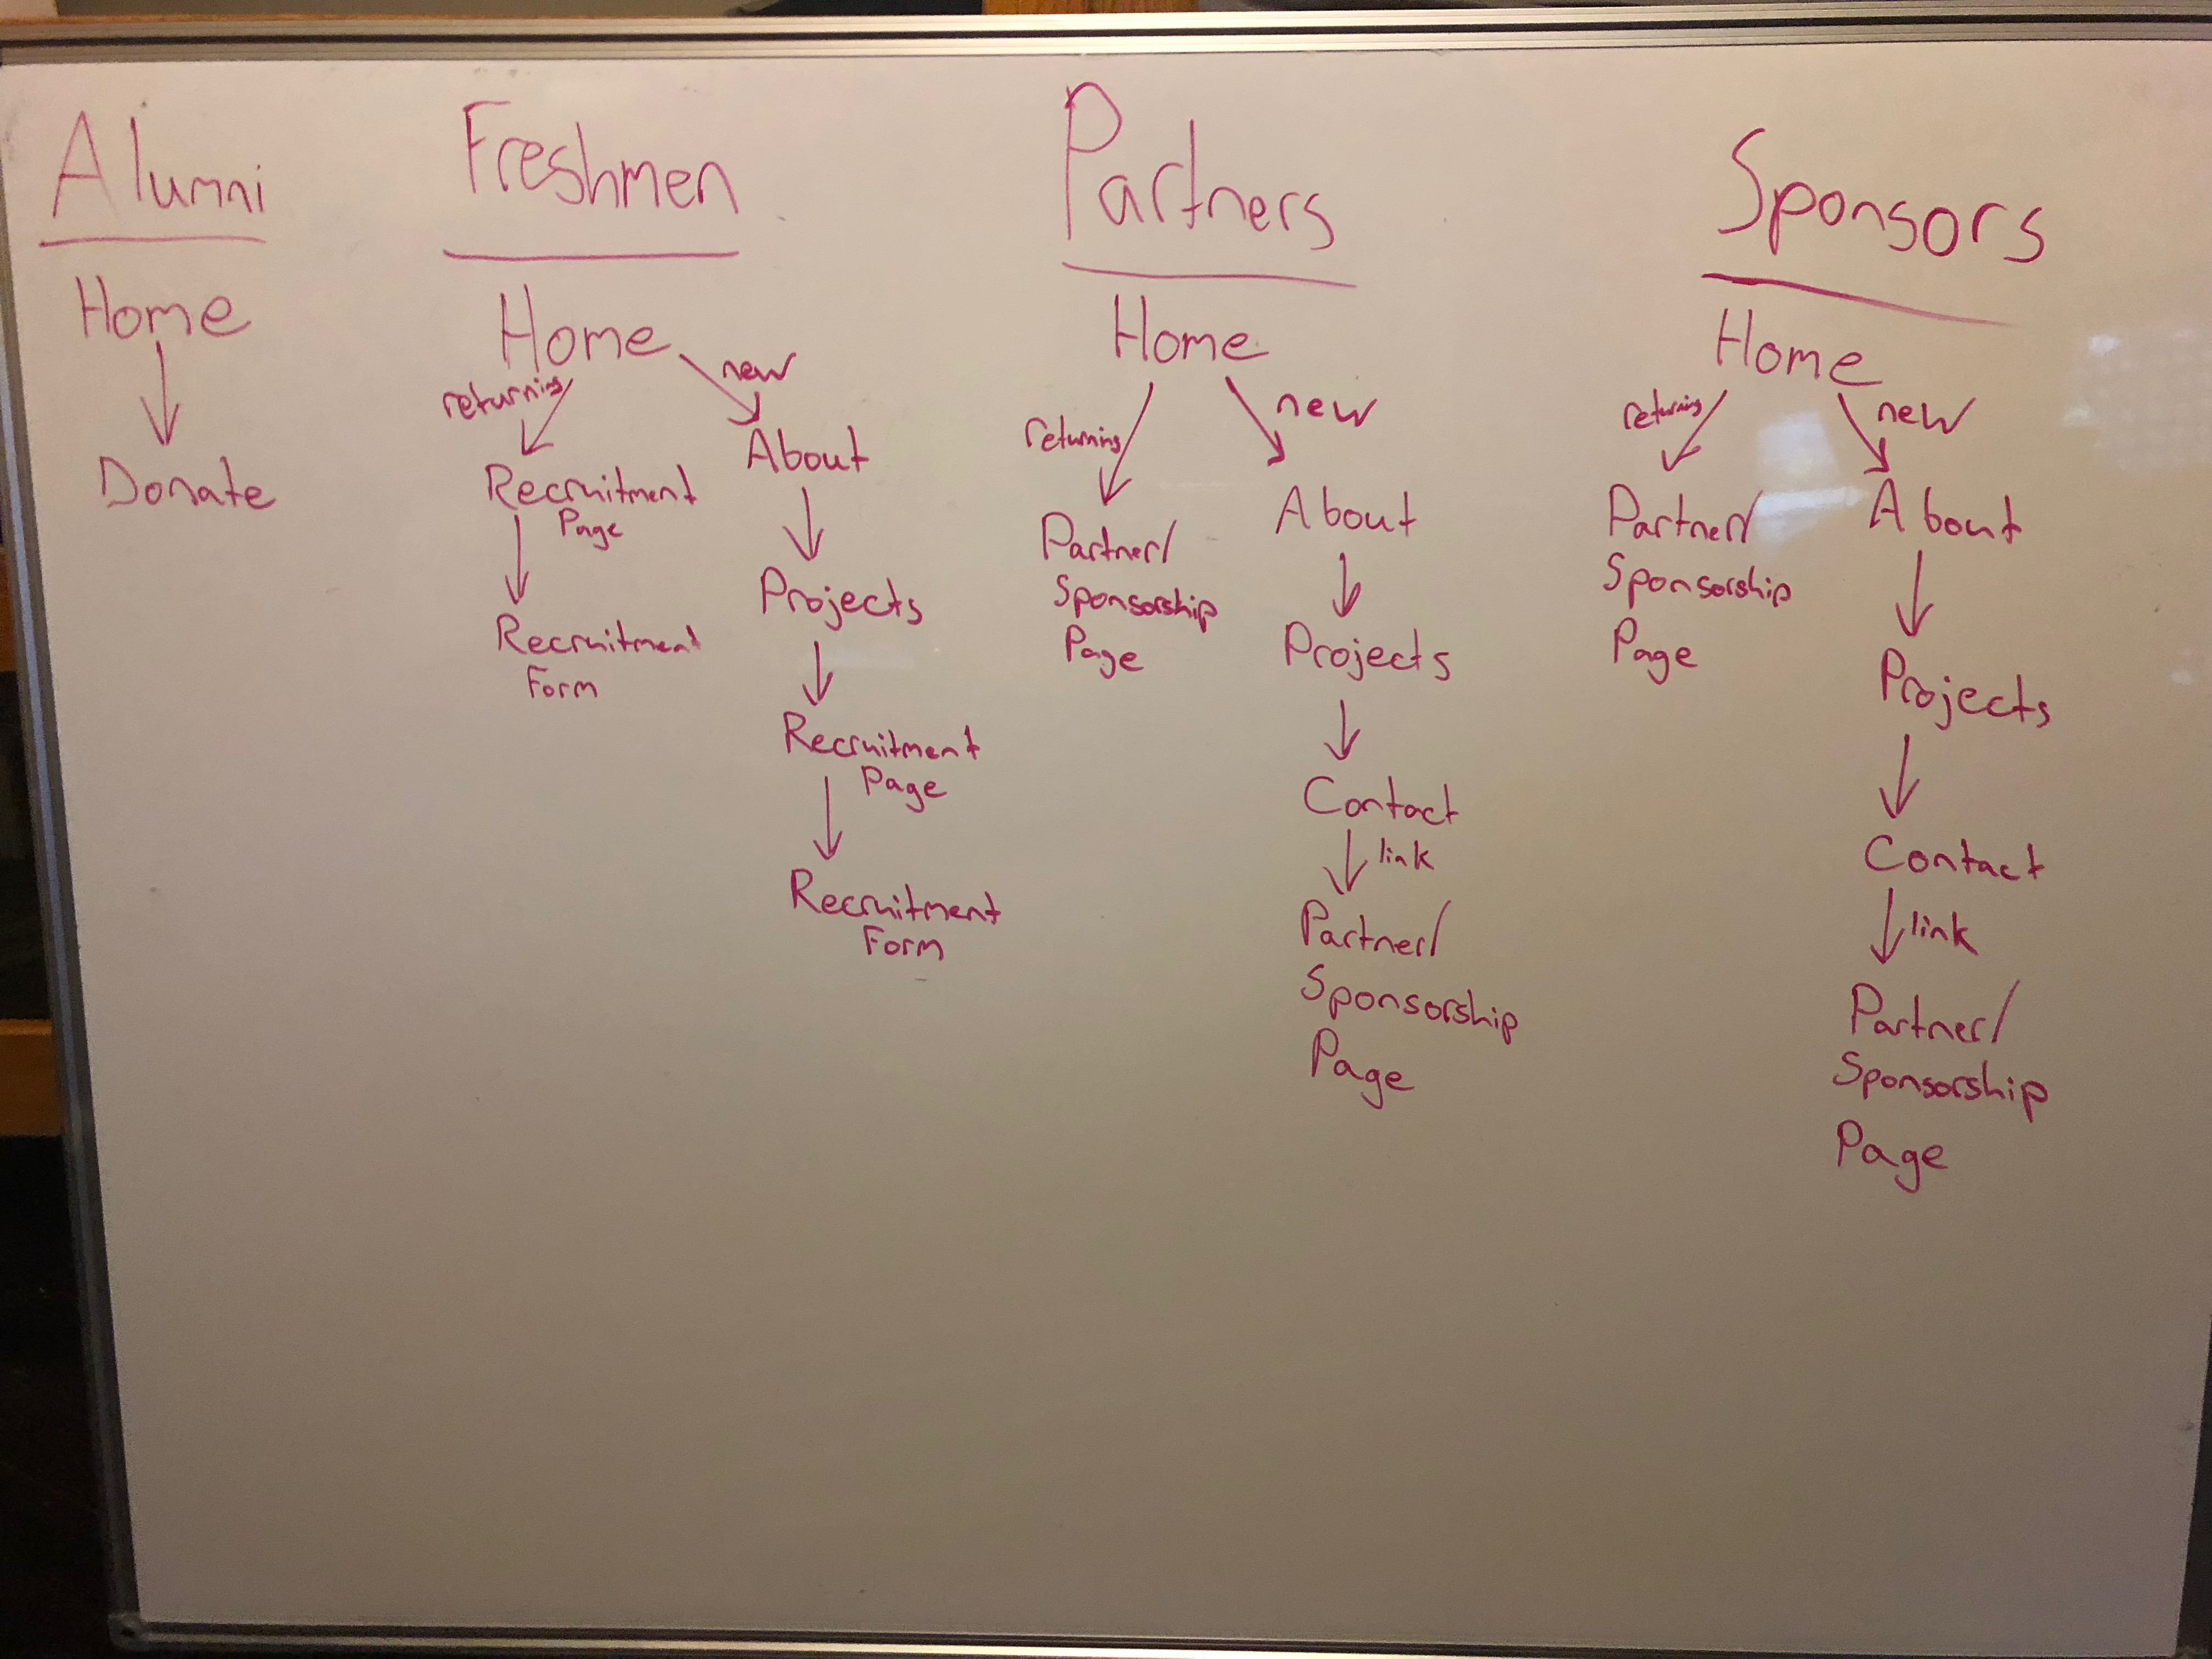 Alumni
Home
Donate
Freshmen
Home
returning
new
Recruitment
Page
Recruitment
Form
About
Projects
Recruitment
Page
Recruitment
Form
Partners
Home
returning
new
Partner/
Sponsorship
Page
About
Projects
Contact
link
Partner/
Sponsorship
Page
Sponsors
Home
returning
new
Partner/
Sponsorship
Page
About
Projects
Contact
link
Partner/
Sponsorship
Page